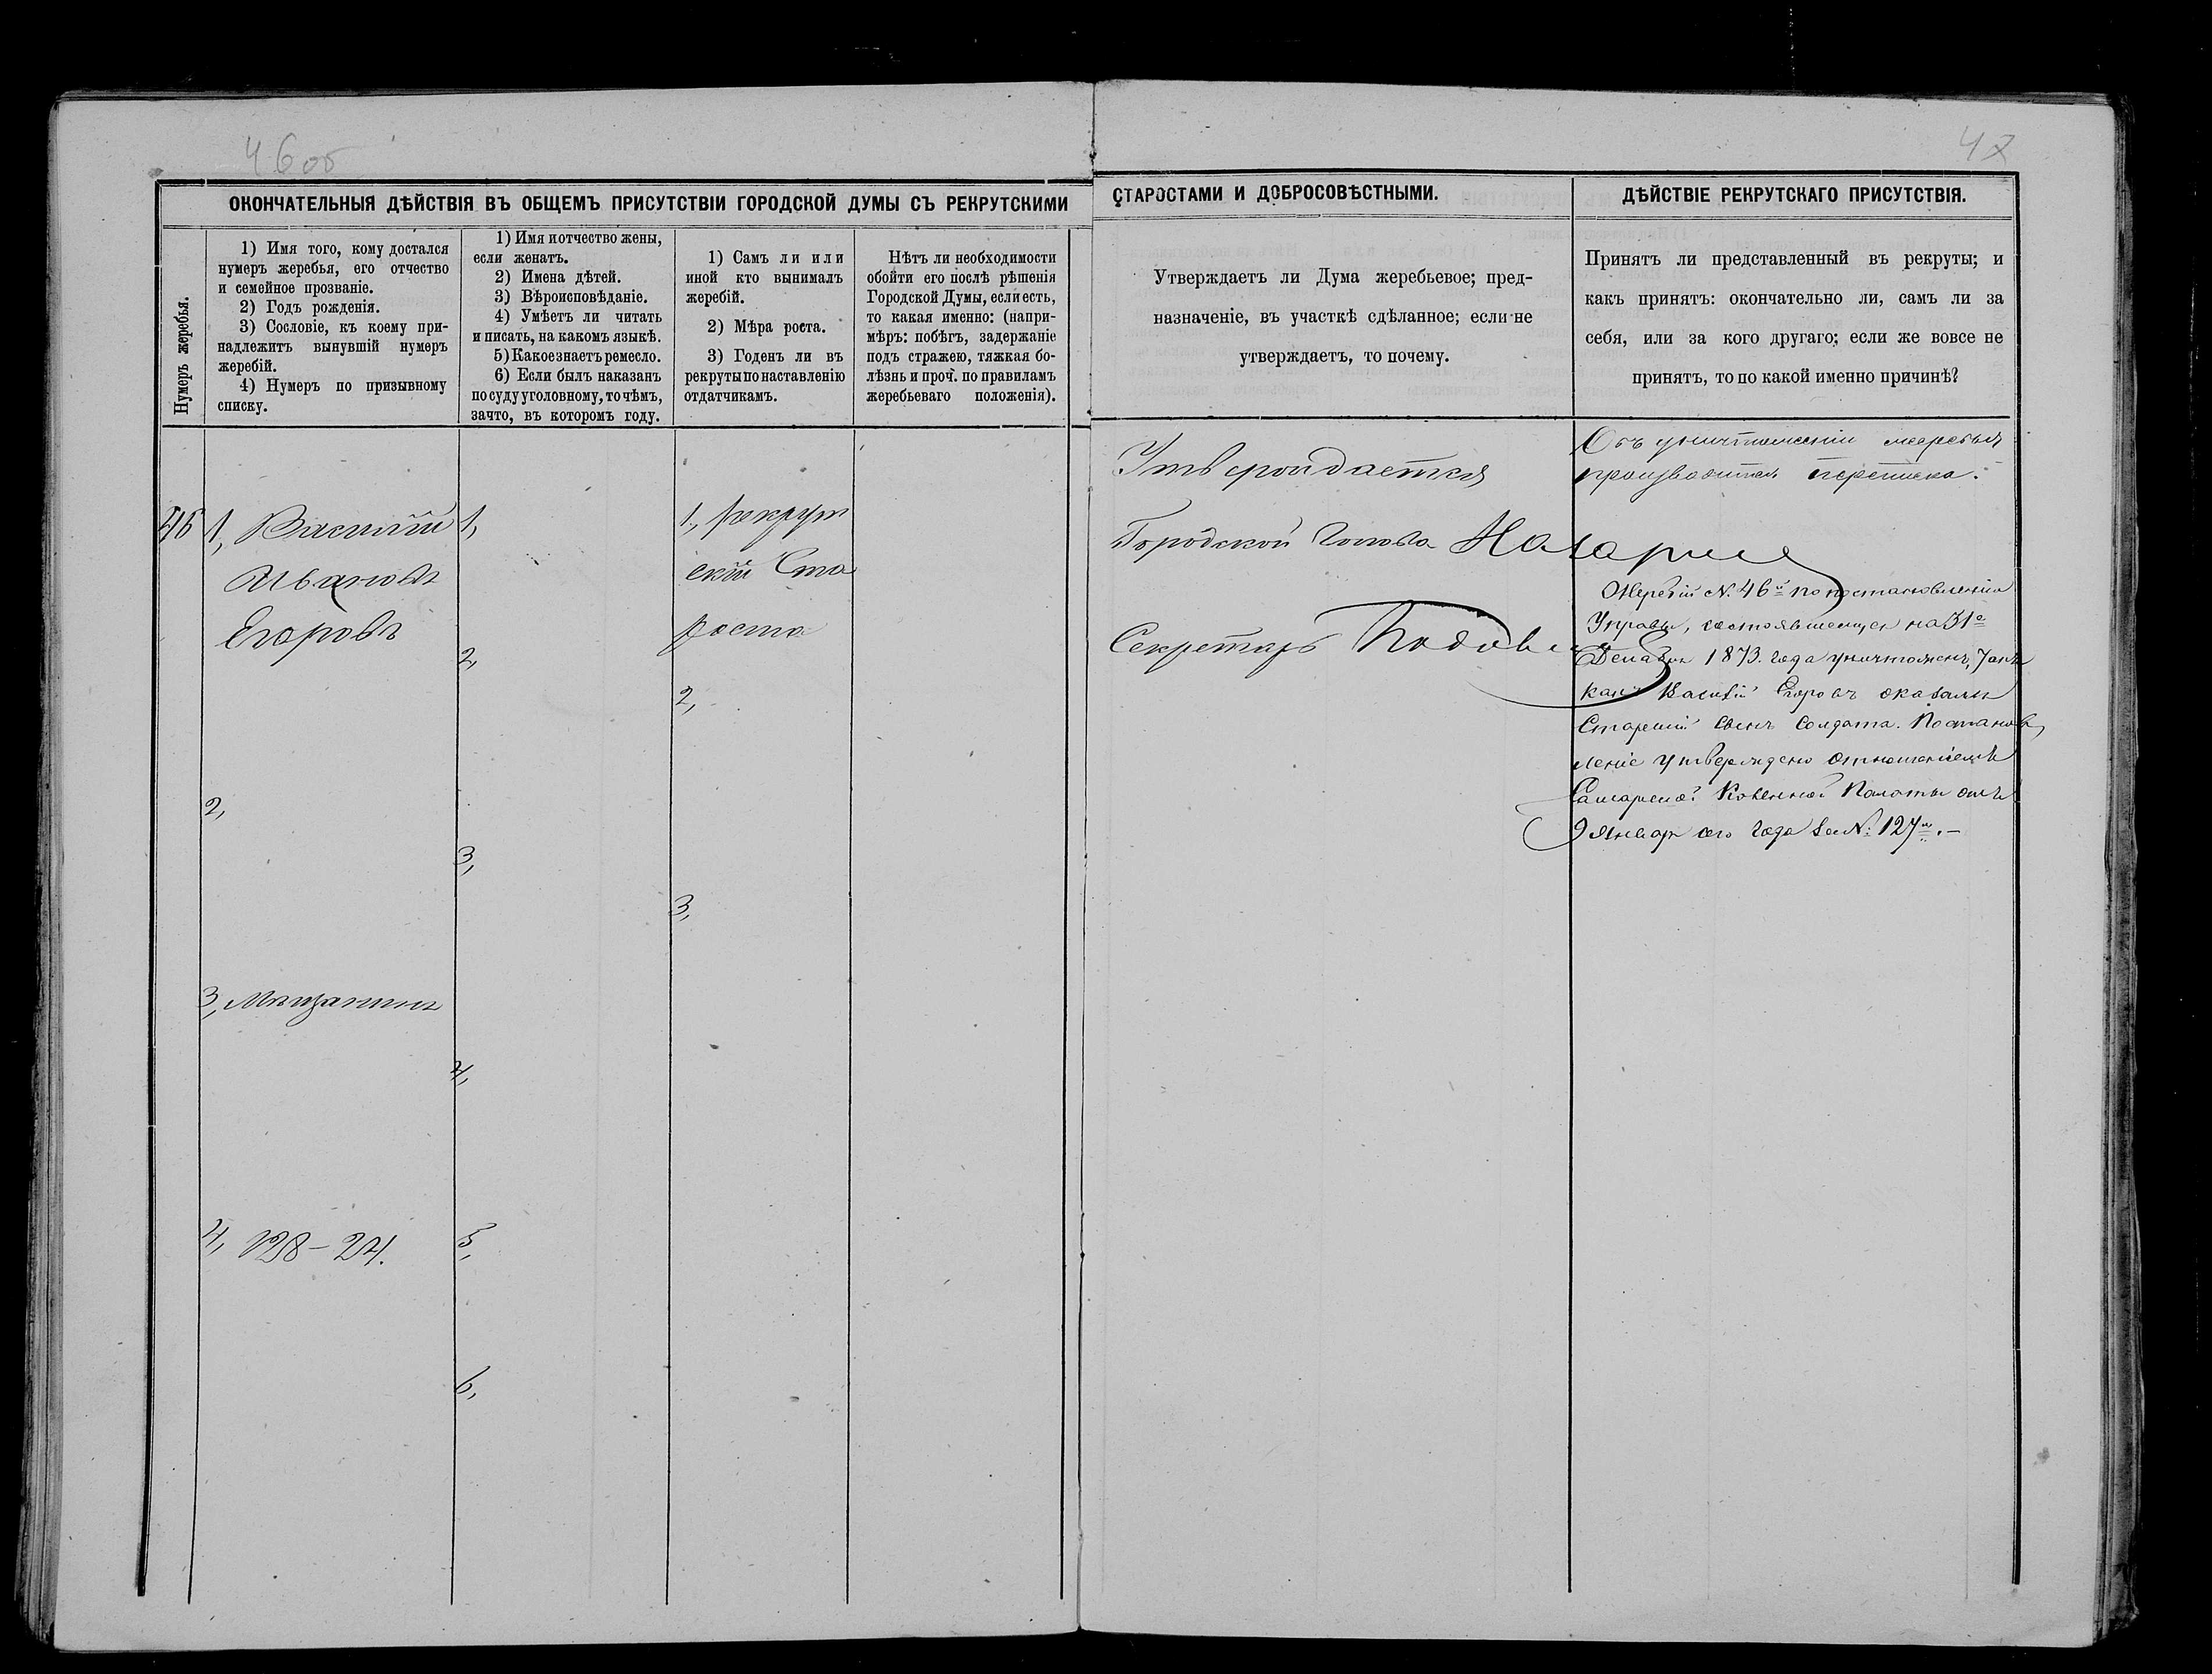 46об
47
ОКОНЧАТЕЛЬНЫЯ ДѢЙСТВІЯ ВЪ ОБЩЕМЪ ПРИСУТСТВІИ ГОРОДСКОЙ ДУМЫ СЪ РЕКРУТСКИМИ
СТАРОСТАМИ И ДОБРОСОВѢСТНЫМИ.
ДѢЙСТВІЕ РЕКРУТСКАГО ПРИСУТСТВІЯ.
Нумеръ жеребья.
1) Имя того, кому достался
нумеръ жеребья, его отчество
и семейное прозваніе.
2) Годъ рожденія.
3) Сословіе, къ коему при-
надлежитъ вынувшій нумеръ
жеребій.
4) Нумеръ по призывному
списку.
1) Имя и отчество жены,
если женатъ.
2) Имена дѣтей.
3) Вѣроисповѣданіе.
4) Умѣетъ ли читать
и писать, на какомъ языкѣ.
5) Какое знаетъ ремесло.
6) Если былъ наказанъ
по суду уголовному, то чѣмъ,
за что, въ которомъ году.
1) Самъ ли или
иной кто вынималъ
жеребій.
2) Мѣра роста.
3) Годенъ ли въ
рекруты по наставленію
отдатчикамъ.
Нѣтъ ли необходимости
обойти его послѣ рѣшенія
Городской Думы, если есть,
то какая именно: (напри-
мѣръ: побѣгъ, задержаніе
подъ стражею, тяжкая бо-
лѣзнь и проч. по правиламъ
жеребьеваго положенія).
Утверждаетъ ли Дума жеребьевое; пред-
назначеніе, въ участкѣ сдѣланное; если не
утверждаетъ, то почему.
Принятъ ли представленный въ рекруты; и
какъ принятъ: окончательно ли, самъ ли за
себя, или за кого другаго; если же вовсе не
принятъ, то по какой именно причинѣ?
46
1, Василій
Ивановъ
Егоровъ
2,
3, Мѣщанинъ
4, 128 - 24.
1,
2,
3,
4,
5,
6,
1, рекрут
скій Ста
роста
2,
3,
Утверждается
Городской Голова
Секретарь
Объ уничтоженіи жеребья
производится переписка.
Жеребій №. 46й по постановленію
Управы, состоявшемуся на 31е
Декабря 1873. года уничтоженъ, такъ
какъ Василій Егоровъ оказался
Старшій сынъ Солдата. Постанов
леніе утверждено отношеніемъ
Самарской Казенной Палаты отъ
9 Января сего года за №: 127м. —